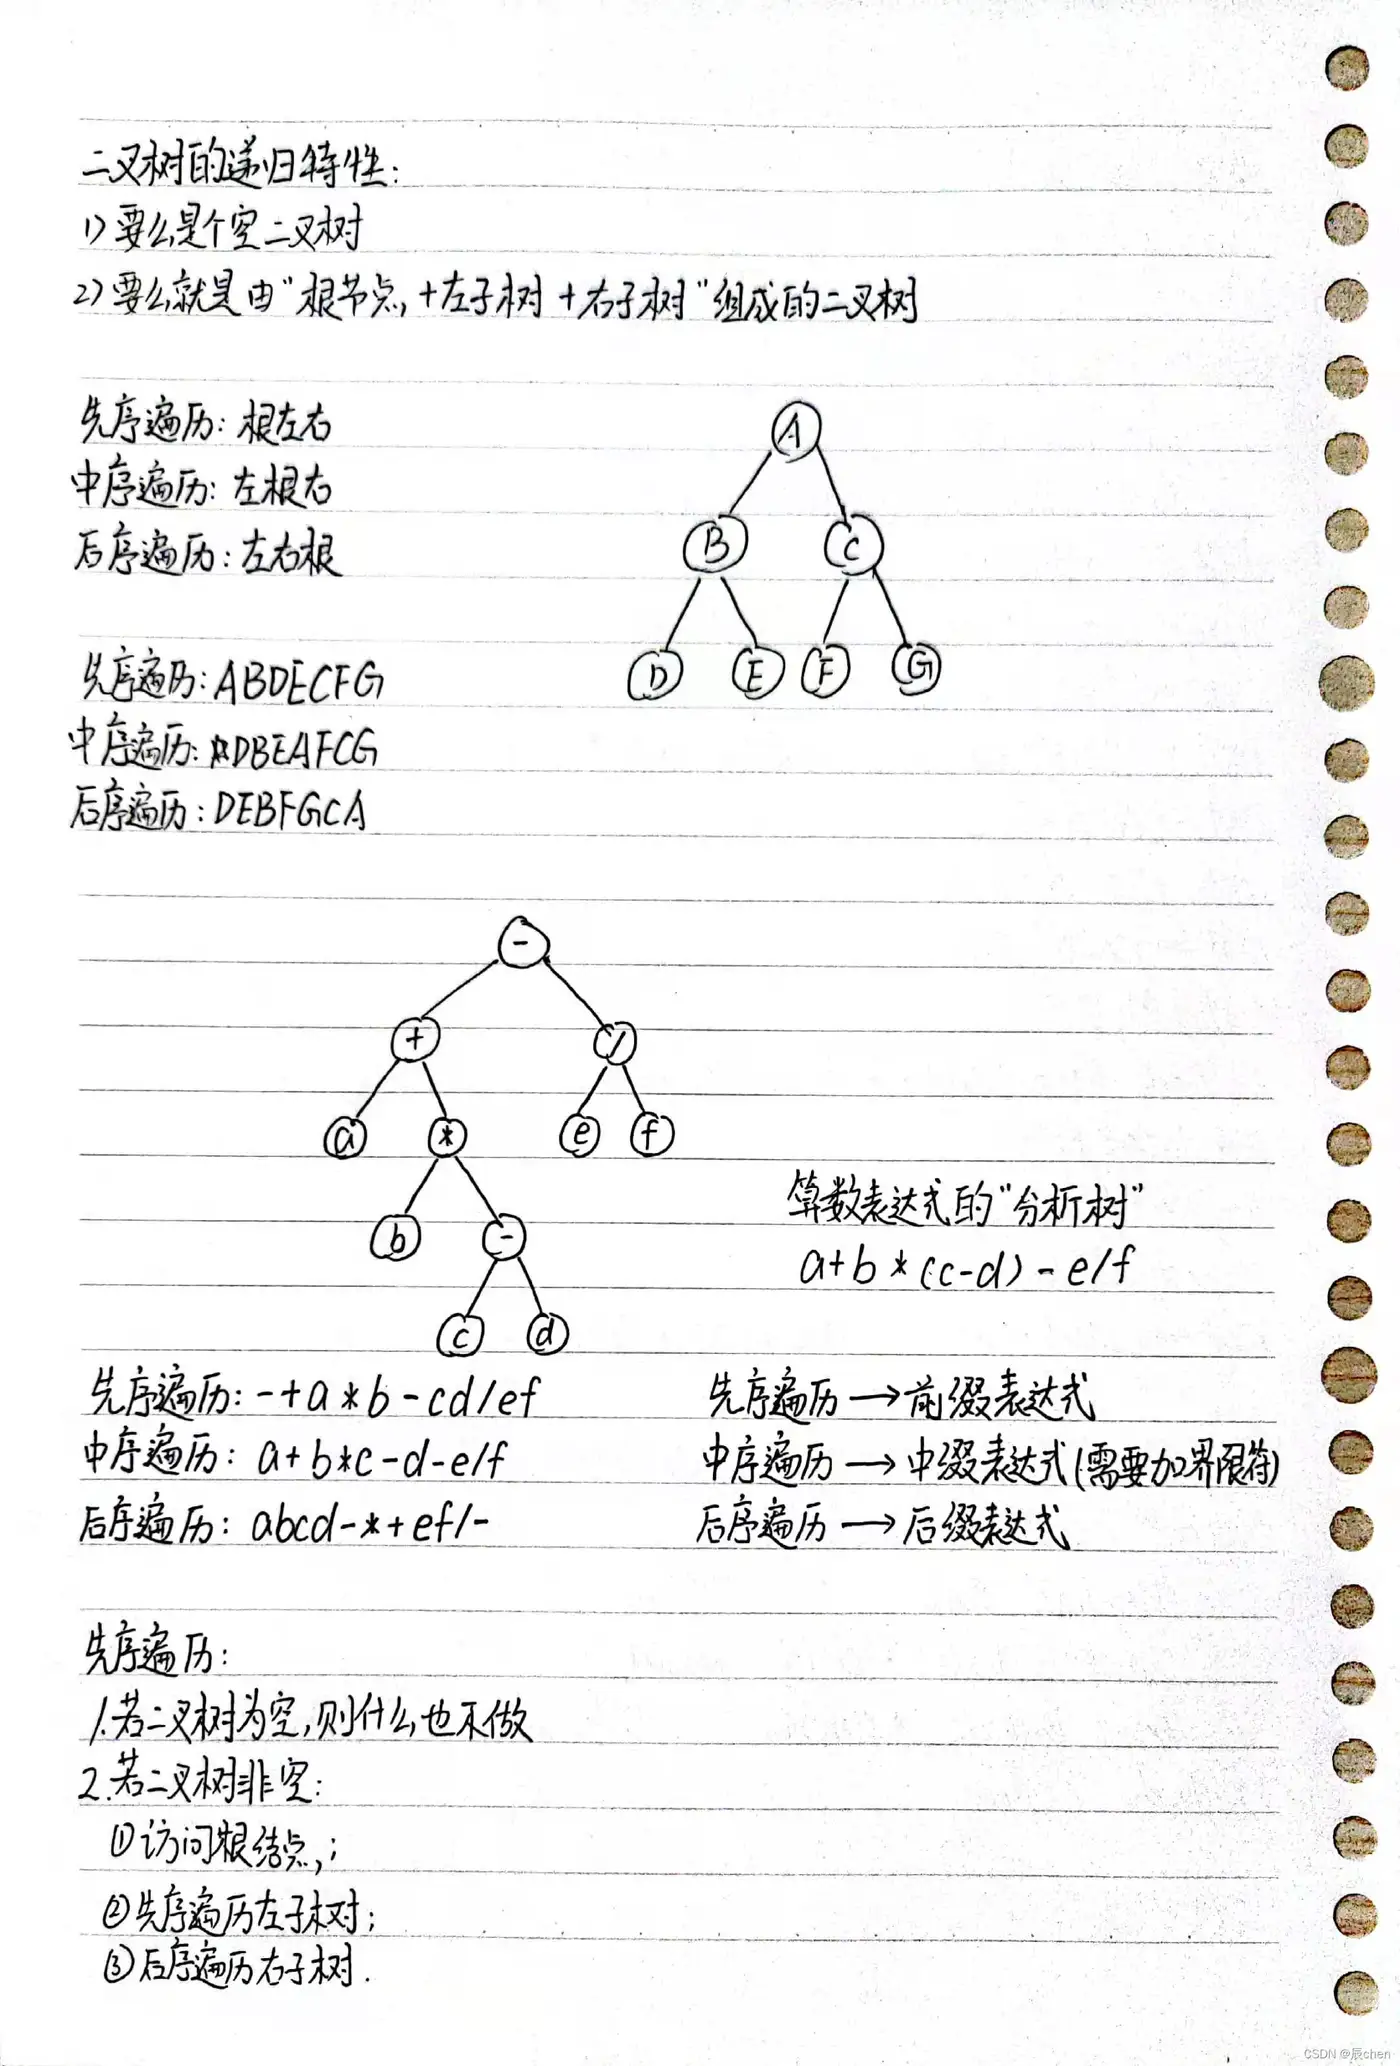 二叉树的递归特性:
1)要么是个空二叉树
2)要么就是由“根节点+左子树+右子树”组成的二叉树
先序遍历: 根左右
中序遍历: 左根右
后序遍历: 左右根
A
B C
D E F G
先序遍历: ABDECFG
中序遍历: DBEAFCG
后序遍历: DEBFGCA
-
+ /
a * e f
b -
c d
算数表达式的“分析树”
a+b*(c-d)-e/f
先序遍历: -+a*b-cd/ef
中序遍历: a+b*c-d-e/f
后序遍历: abcd-*+ef/-
先序遍历→前缀表达式
中序遍历→中缀表达式(需要加界限符)
后序遍历→后缀表达式
先序遍历:
1.若二叉树为空,则什么也不做
2.若二叉树非空:
①访问根结点;
②先序遍历左子树;
③后序遍历右子树.
CSDN @辰chen